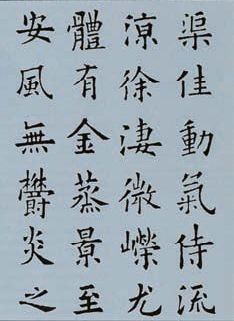 渠佳動氣侍流
涼徐淒微嶸尤
體有金蒸景至
安風無鬱炎之